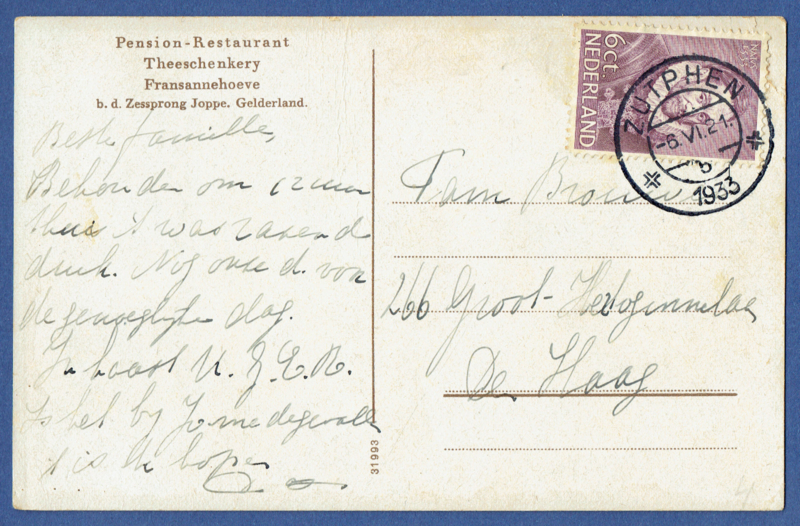 Pension-Restaurant
Theeschenkery
Fransannehoeve
b. d. Zessprong Joppe. Gelderland.
Beste familie,
Behouden om uur
thuis 't was razend
druk. Nog onze d. voor
de genoegelijke dag.
In haast
Is het bij Jo meegevallen
't is te hopen
6 ct.
NEDERLAND
ZUTPHEN
-6.VI.21.
1933
Fam Brouwer
266 Groot-Hertoginnelaan
Den Haag
31993